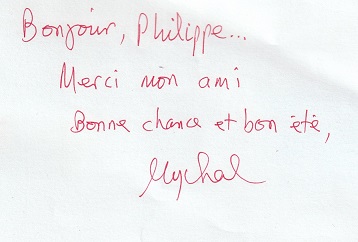 Bonjour, Philippe...
Merci mon ami
Bonne chance et bon été,
Mychal